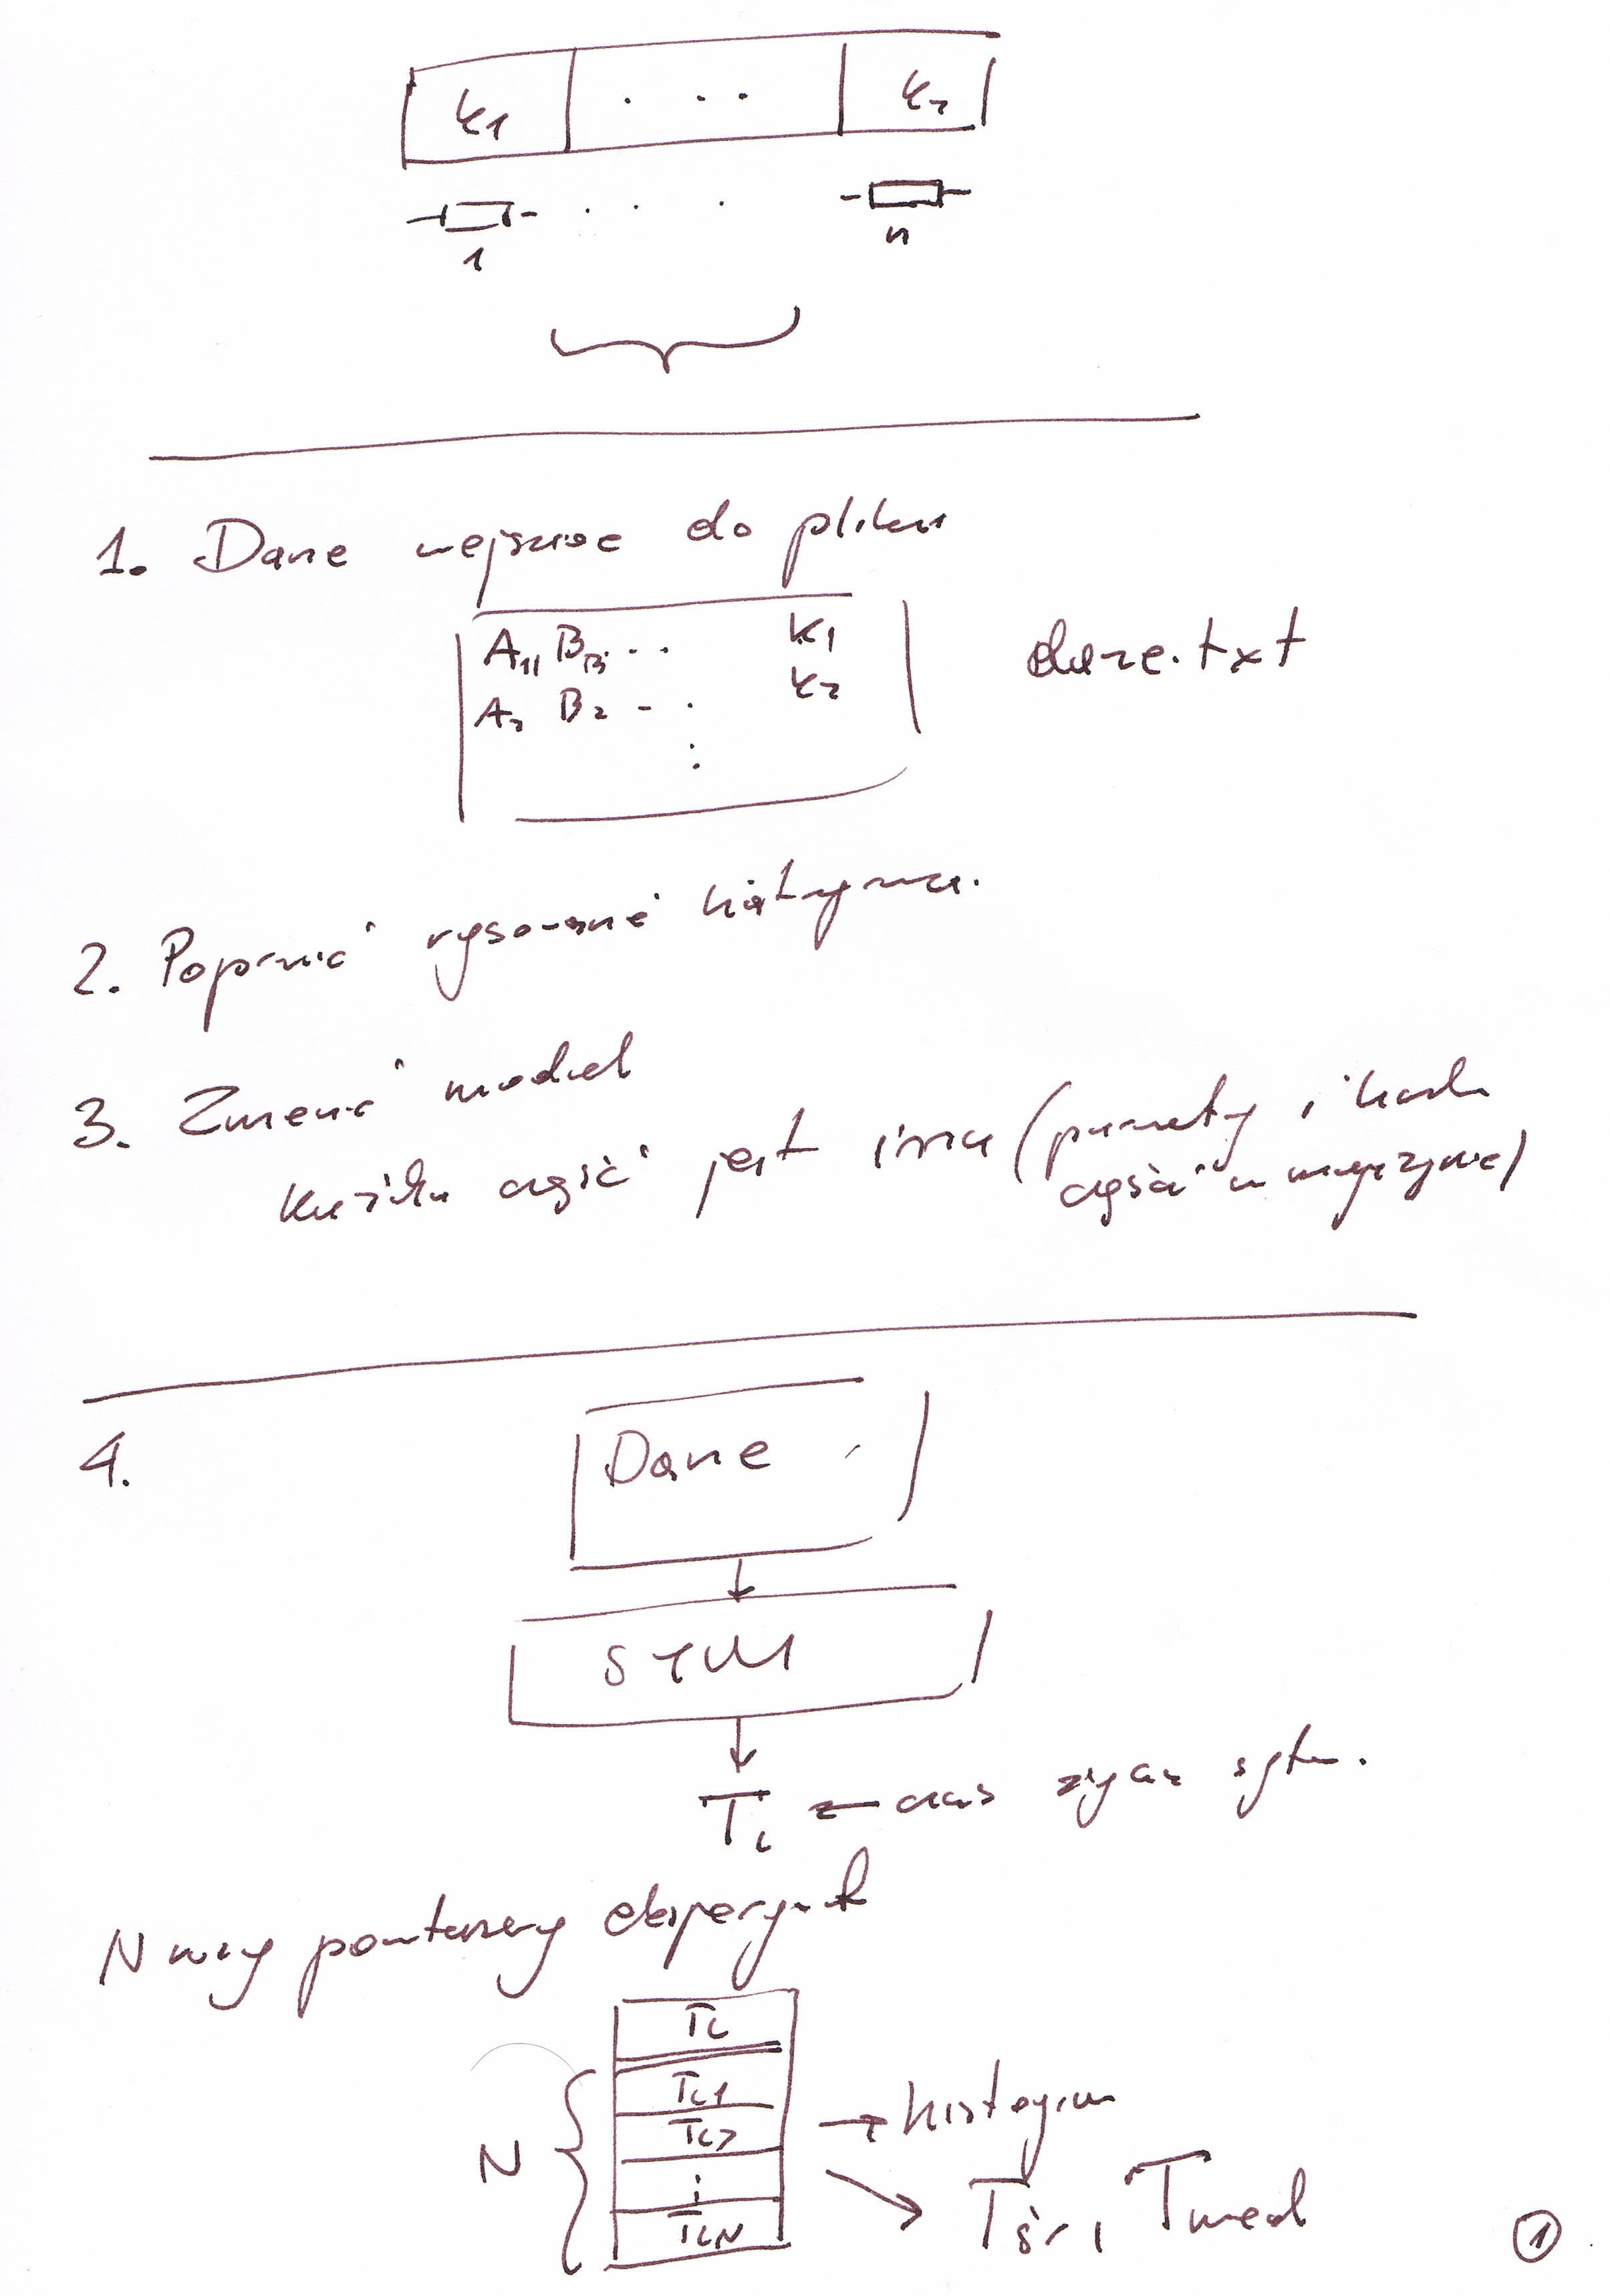 k1 . . . k2
1 . . . n
1. Dane wejściowe do pliku
A11 B13 . . . k1
A2 B2 - . k2
dane.txt
2. Poprawić rysowanie histogramu.
3. Zmienić model
każda część jest inna (parametry i liczba
części w magazynie)
4.
Dane
SYM
Ti ← czas życia systemu.
N razy powtarzamy eksperyment
Ti
Ti1
Ti2
⋮
TiN
N
→ histogram
Tśr, Tmed
1